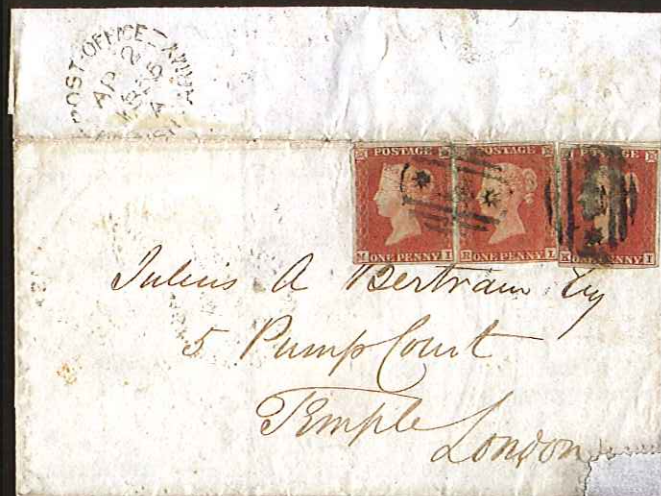 POST OFFICE
AP 2
POSTAGE POSTAGE
ONE PENNY ONE PENNY ONE PENNY
Julius A Bertram Esq
5 Pump Court
Temple
London